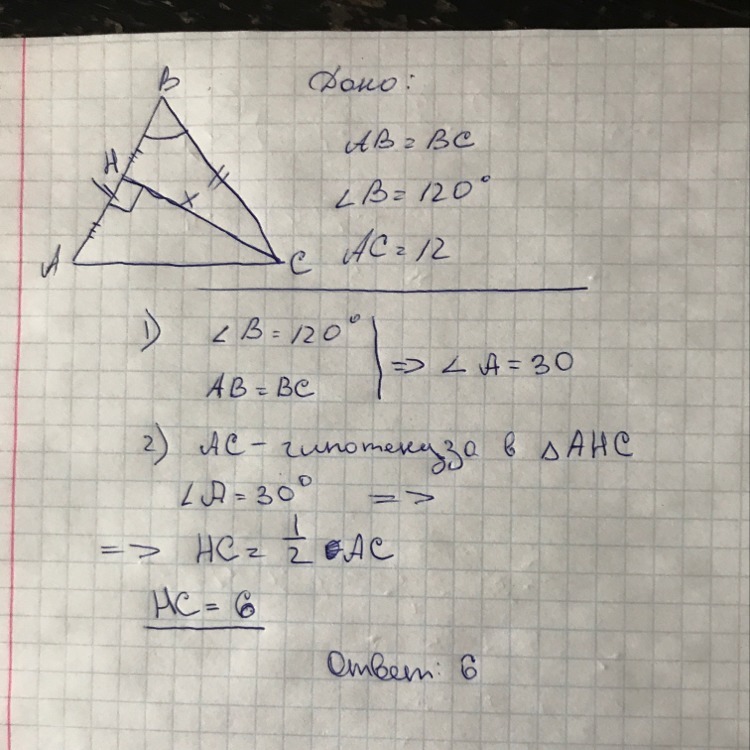 B
H
x
A
C
Дано:
AB = BC
∠B = 120°
AC = 12
1) ∠B = 120°
AB = BC
=> ∠A = 30
2) AC - гипотенуза в △AHC
∠A = 30° =>
=> HC = 1/2 AC
HC = 6
Ответ: 6